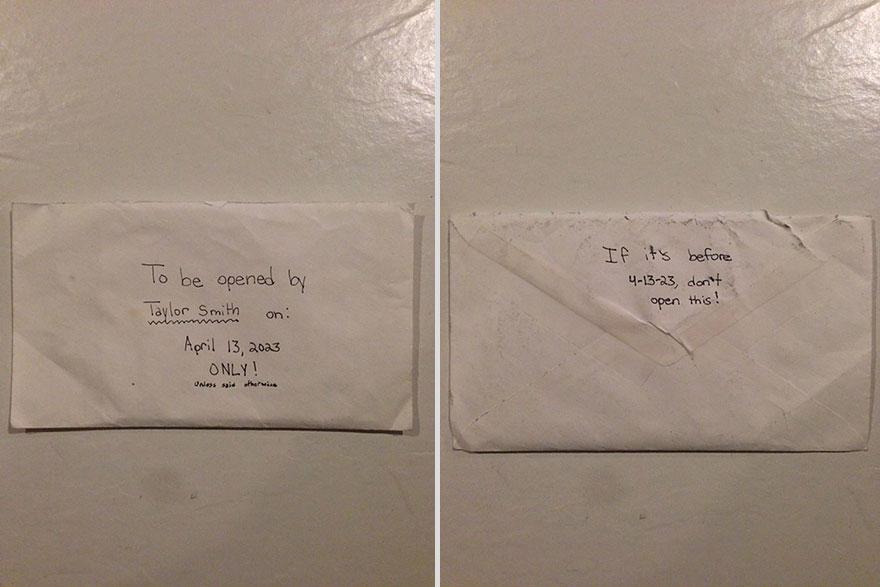 To be opened by
Taylor Smith on:
April 13, 2023
ONLY!
unless said otherwise
If it's before
4-13-23, don't
open this!